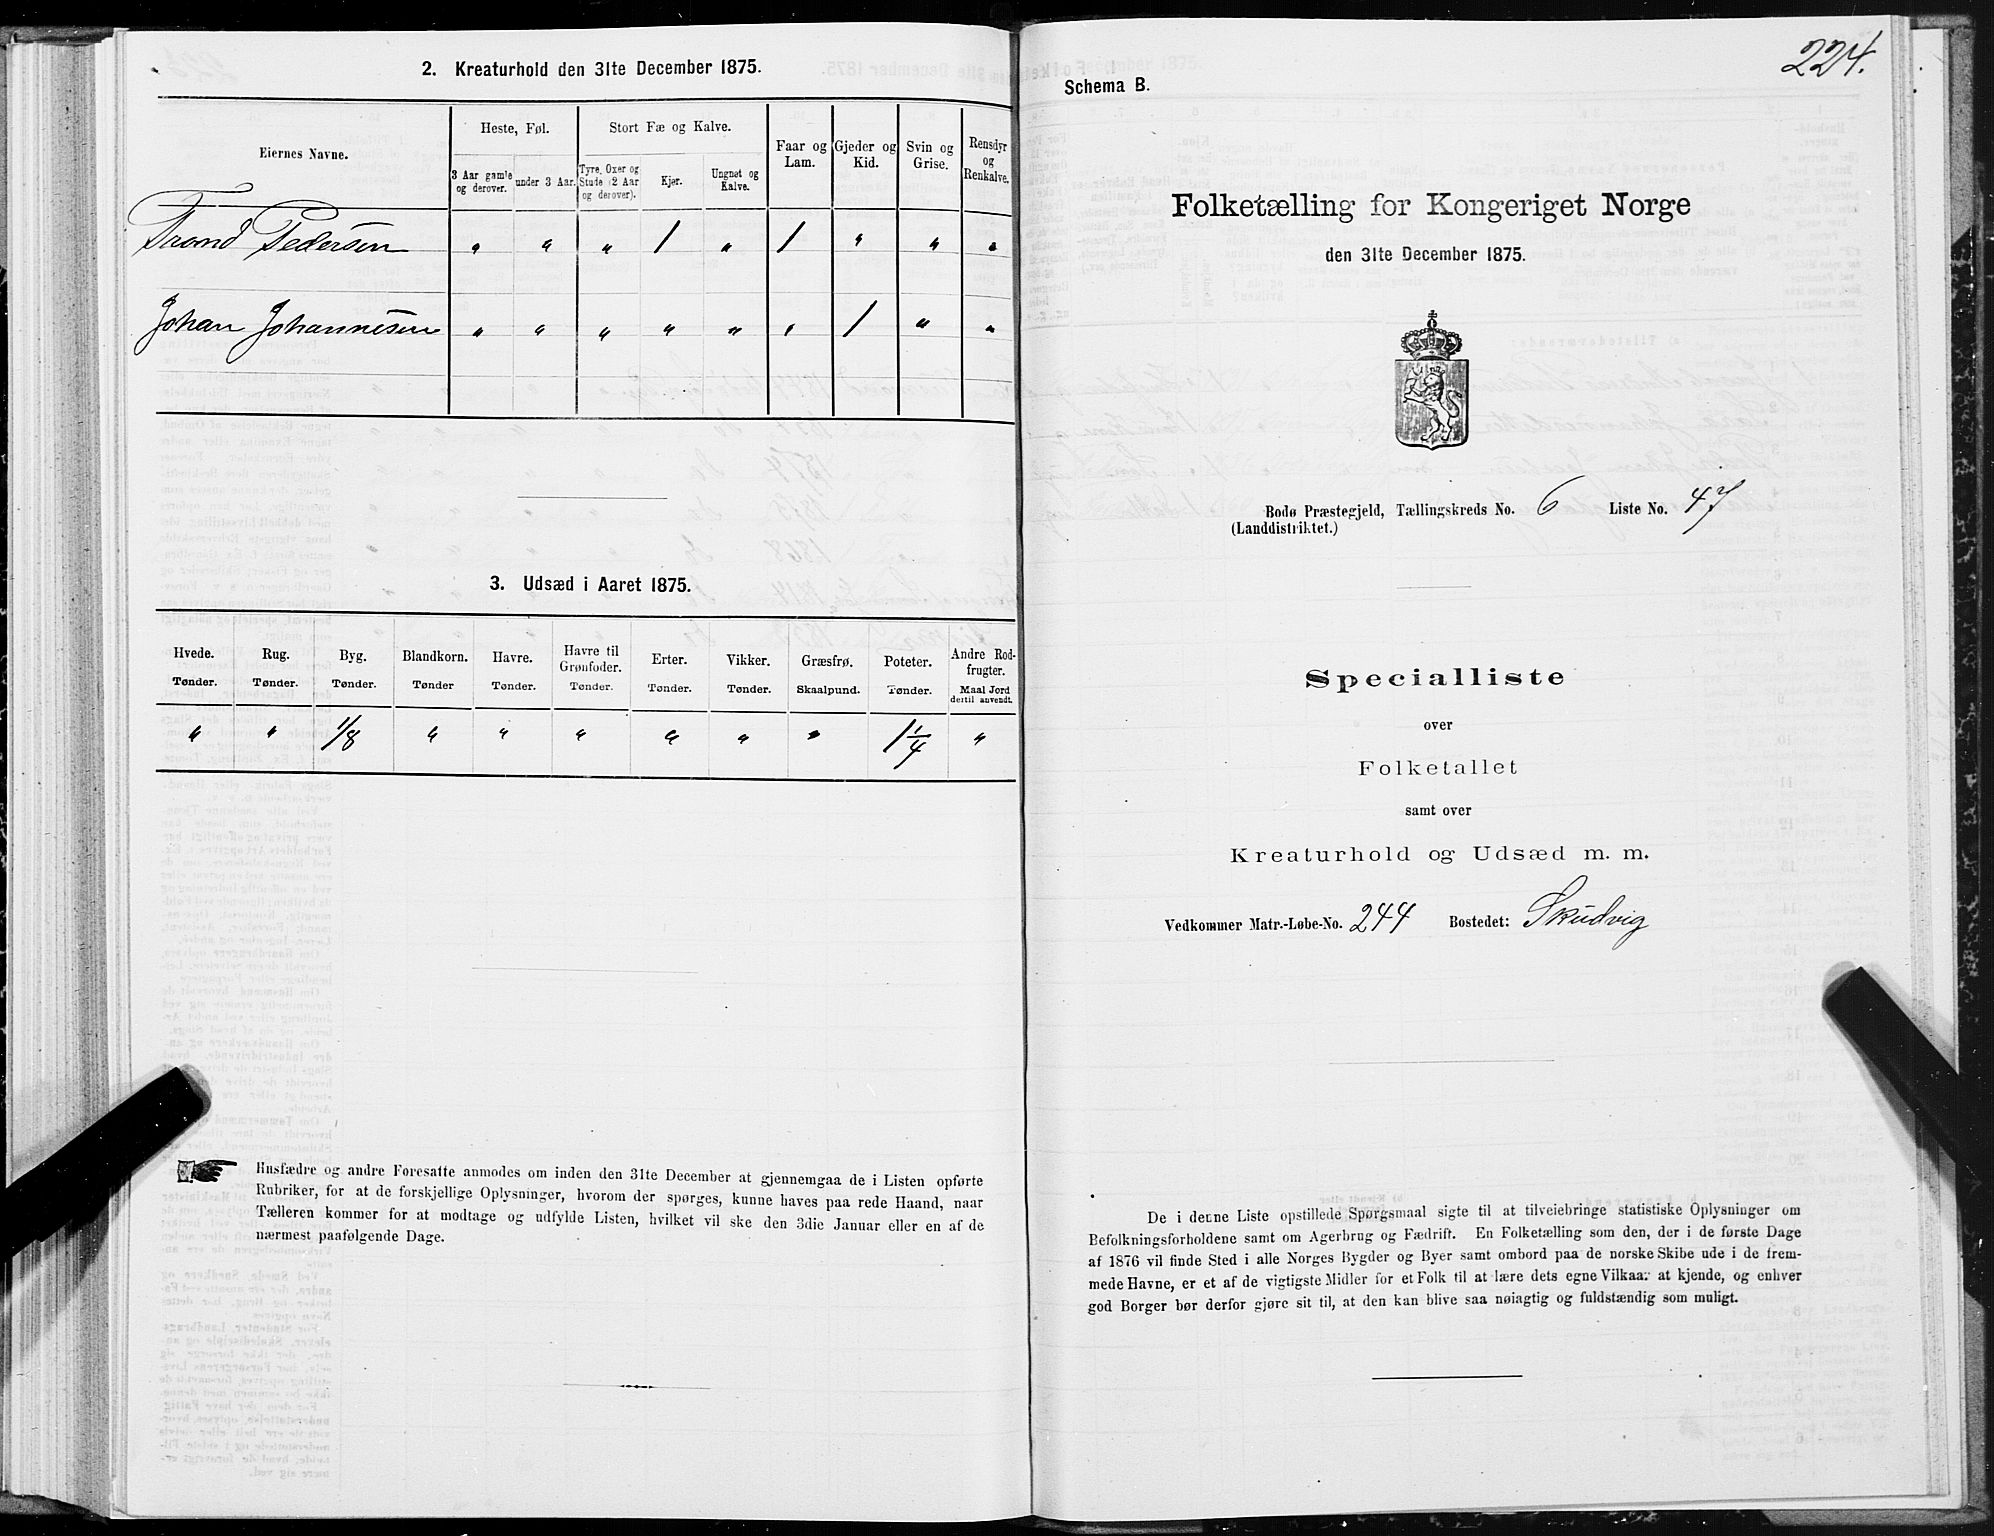 2. Kreaturhold den 31te December 1875.
Eiernes Navne.
Heste, Føl.
Stort Fæ og Kalve.
Faar og Lam.
Gjeder og Kid.
Svin og Grise.
Rensdyr og Renkalve.
3 Aar gamle og derover.
under 3 Aar.
Tyre, Oxer og Stude (2 Aar og derover).
Kjør.
Ungnøt og Kalve.
Trond Pedersen " " " 1 " 1 " " "
Johan Johannesen " " " " " " 1 " "
3. Udsæd i Aaret 1875.
Hvede. Rug. Byg. Blandkorn. Havre. Havre til Grønfoder. Erter. Vikker. Græsfrø. Poteter. Andre Rodfrugter.
Tønder. Tønder. Tønder. Tønder Tønder. Tønder. Tønder. Tønder. Skaalpund. Tønder. Maal Jord dertil anvendt.
" " 1/8 " " " " " " 1 1/4 "
Husfædre og andre Foresatte anmodes om inden den 31te December at gjennemgaa de i Listen opførte
Rubriker, for at de forskjellige Oplysninger, hvorom der spørges, kunne haves paa rede Haand, naar
Tælleren kommer for at modtage og udfylde Listen, hvilket vil ske den 3die Januar eller en af de
nærmest paafølgende Dage.
224.
Schema B.
Folketælling for Kongeriget Norge
den 31te December 1875.
Bodø Præstegjeld, Tællingskreds No. 6 Liste No. 47
(Landdistriktet.)
Specialliste
over
Folketallet
samt over
Kreaturhold og Udsæd m. m.
Vedkommer Matr.-Løbe-No. 244 Bostedet: Skudvig
De i denne Liste opstillede Spørgsmaal sigte til at tilveiebringe statistiske Oplysninger om
Befolkningsforholdene samt om Agerbrug og Fædrift. En Folketælling som den, der i de første Dage
af 1876 vil finde Sted i alle Norges Bygder og Byer samt ombord paa de norske Skibe ude i de frem-
mede Havne, er et af de vigtigste Midler for et Folk til at lære dets egne Vilkaar at kjende, og enhver
god Borger bør derfor gjøre sit til, at den kan blive saa nøiagtig og fuldstændig som muligt.